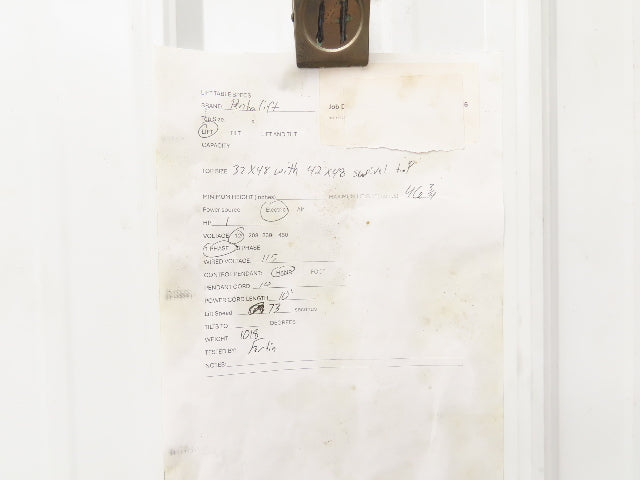 LIFT TABLE SPECS
BRAND:
Job
6
LIFT TILT LIFT AND TILT
CAPACITY
TOP SIZE 32X48 with 42X48 swivel top
MINIMUM HEIGHT (notes) 46 3/4
Power source Electric Air
HP 1
VOLTAGE 208 230 460
1 PHASE 3 PHASE
WIRED VOLTAGE 115
CONTROL PENDANT: HAND FOOT
PENDANT CORD 10'
POWER CORD LENGTH 10'
Lift Speed 73 seconds
TILTS TO DEGREES
WEIGHT 1018
TESTED BY:
NOTES: